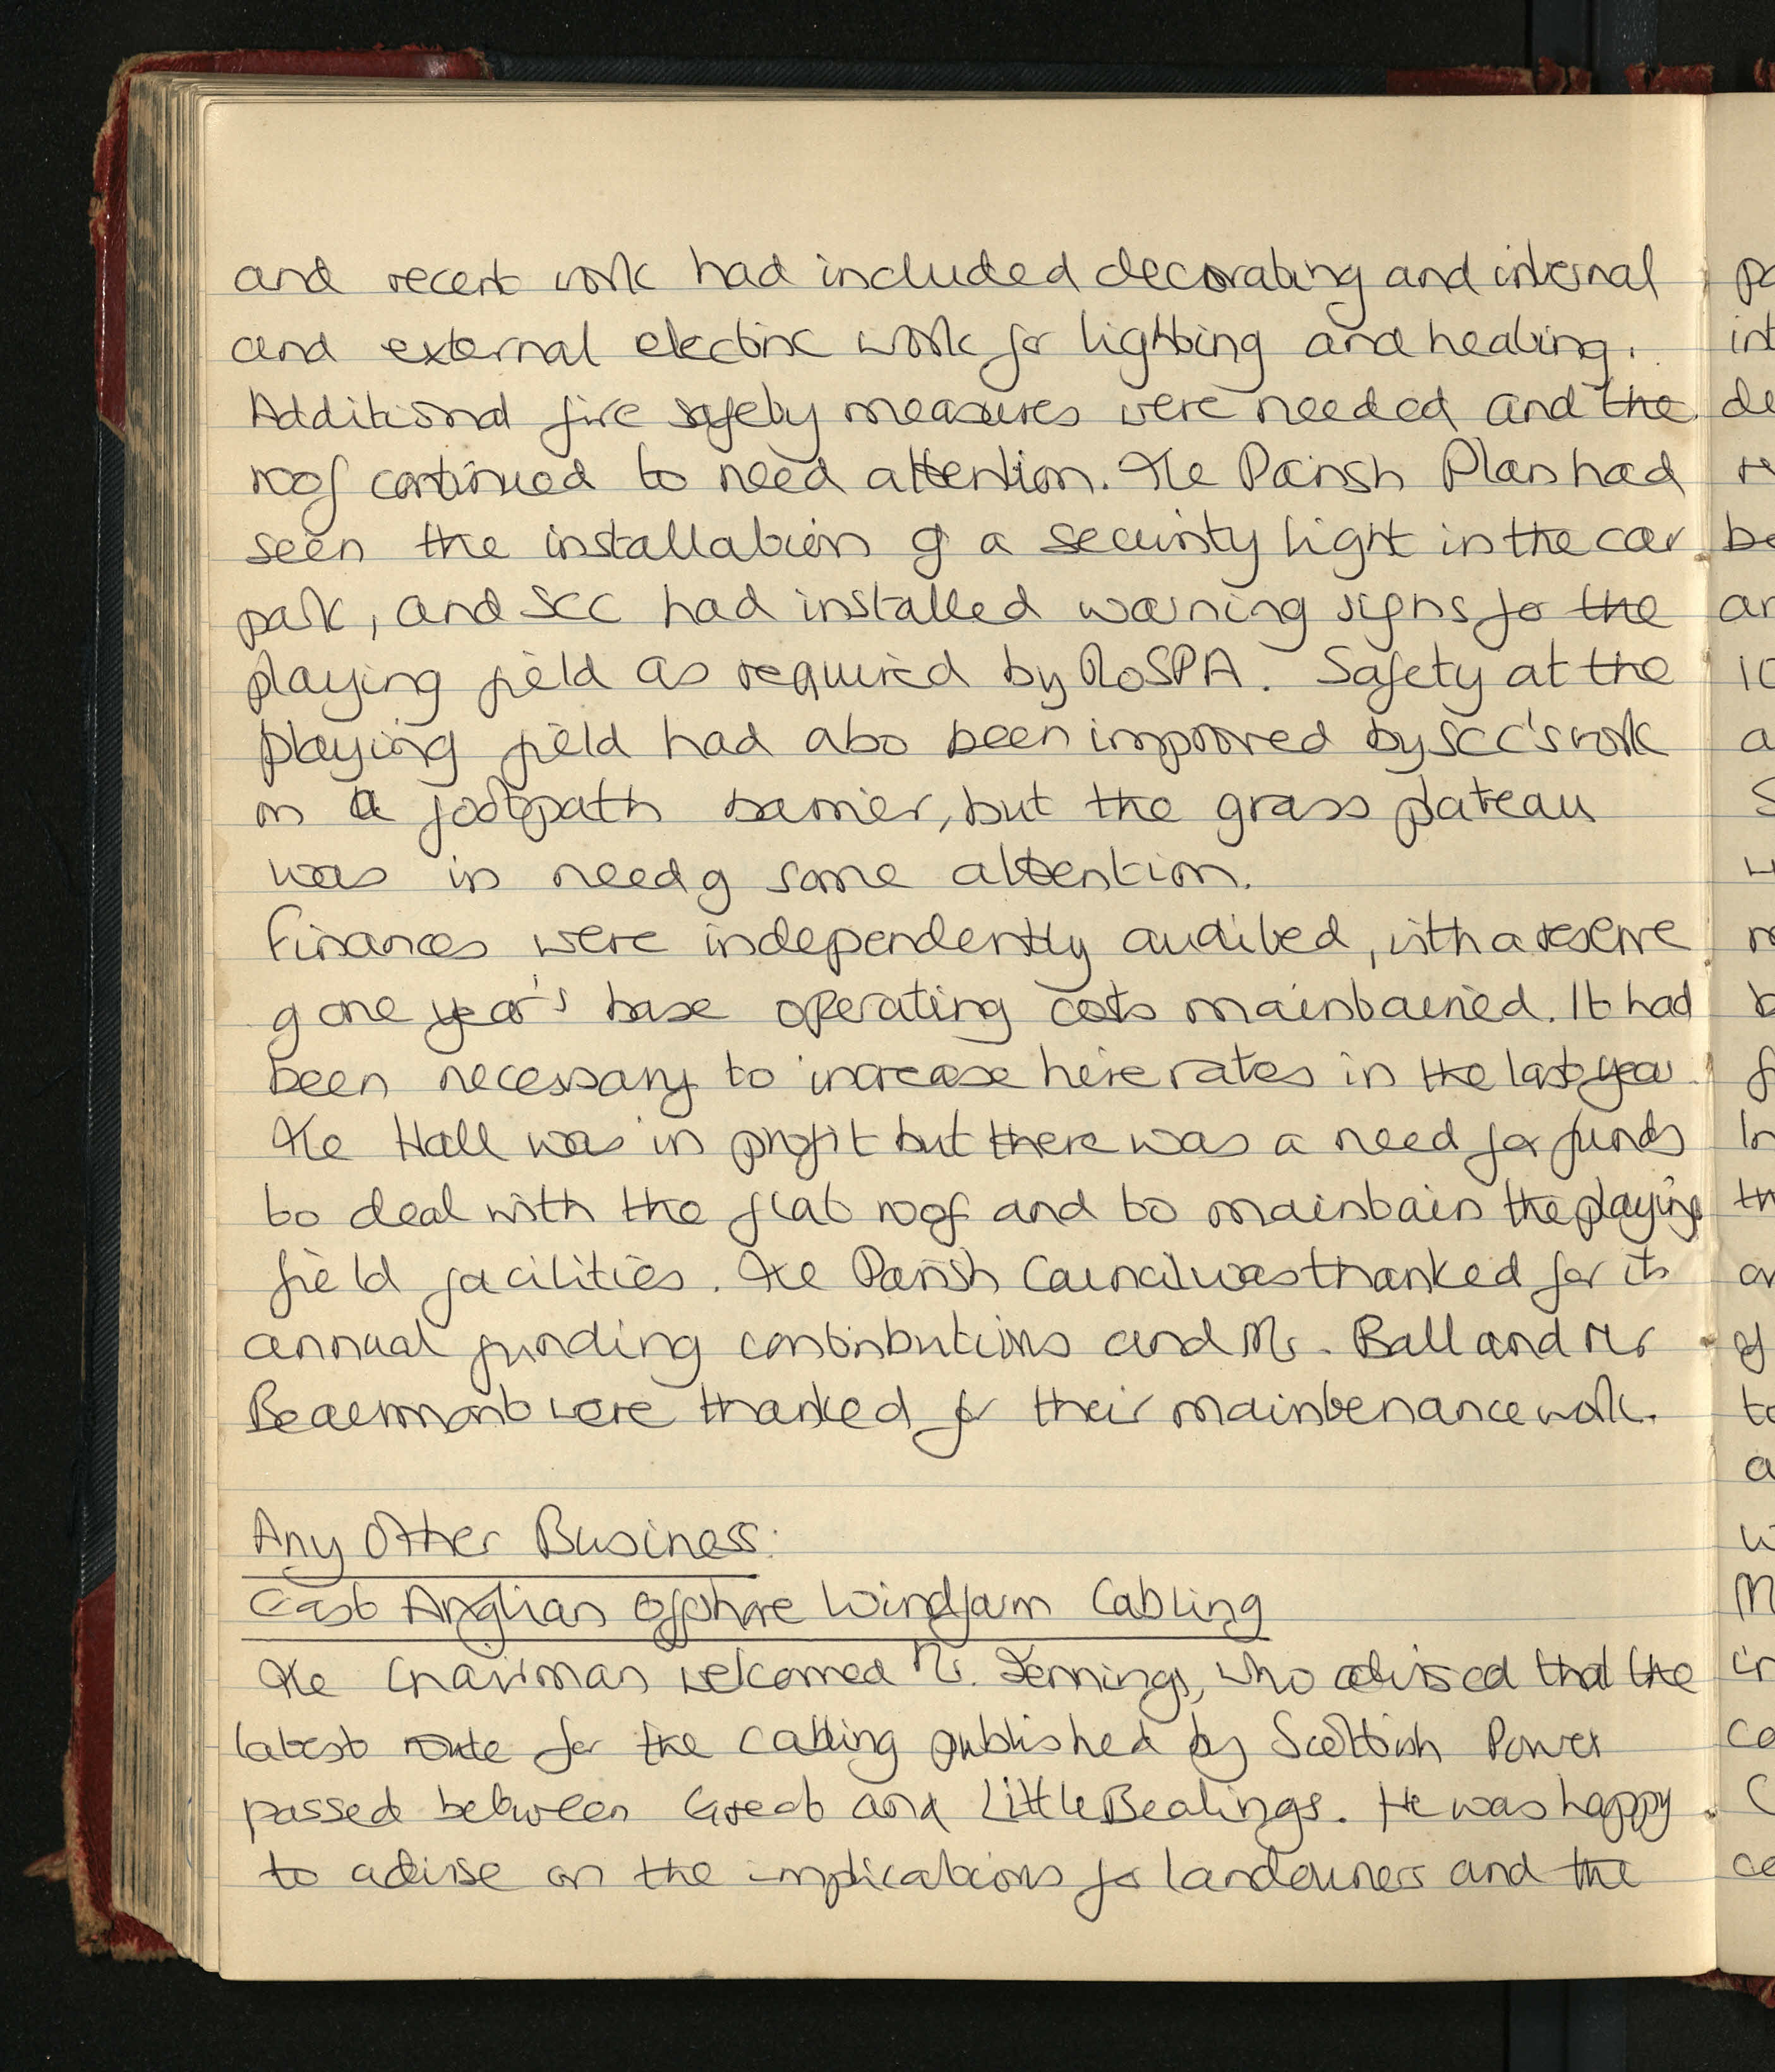 and recent work had included decorating and internal
and external electric work for lighting and heating.
Additional fire safety measures were needed and the
roof continued to need attention. The Parish Plan had
seen the installation of a security light in the car
park, and SCC had installed warning signs for the
playing field as required by RoSPA. Safety at the
playing field had also been improved by SCC's work
on a footpath barrier, but the grass plateau
was in need of some attention.
Finances were independently audited, with a reserve
of one year's base operating costs maintained. It had
been necessary to increase hire rates in the last year.
The Hall was in profit but there was a need for funds
to deal with the flat roof and to maintain the playing
field facilities. The Parish Council was thanked for its
annual funding contributions and Mr. Ball and Mr
Beaumont were thanked for their maintenance work.
Any Other Business:
East Anglian Offshore Windfarm Cabling
The Chairman welcomed Mr. Jennings, who advised that the
latest route for the cabling published by Scottish Power
passed between Great and Little Bealings. He was happy
to advise on the implications for landowners and the